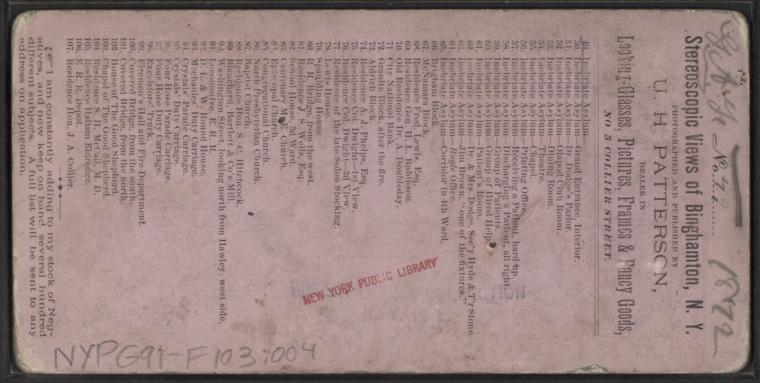 1872
Stereoscopic Views of Binghamton, N. Y.
PHOTOGRAPHED AND PUBLISHED BY
U. H. PATTERSON,
DEALER IN
Looking-Glasses, Pictures, Frames & Fancy Goods,
NO 3 COLLIER STREET.
Inebriate Asylum
50. Inebriate Asylum— Grand Entrance, Interior.
51. Inebriate Asylum— Dr. Dodge's Parlor.
52. Inebriate Asylum— Club Room.
53. Inebriate Asylum— Dining Room.
54. Inebriate Asylum— Theatre.
55. Inebriate Asylum— Chapel.
56. Inebriate Asylum— Printing Office.
57. Inebriate Asylum— Receiving a Patient, hard up.
58. Inebriate Asylum— a Patient, all right.
59. Inebriate Asylum— Group of Patients.
60. Inebriate Asylum— Group of Hired Help.
61. Inebriate Asylum— Room.
62. Inebriate Asylum— Dr. & Mrs. Dodge, Sec'y Hyde & T'r Stone.
63. Inebriate Asylum— "one of the fixtures."
64. Inebriate Asylum— Office.
65. Inebriate Asylum— Corridor in 4th Ward.
66. Block.
67. Block.
68. Residence Lewis, Esq.
69. Residence H. L. Robinson.
70. Old Residence Dr. A. Doubleday.
71. City National Bank.
72. Block, after the fire.
73. Aldrich Block.
74. Residence S. Phelps, Esq.
75. Residence Col. Dwight—1st View.
76. Residence Col. Dwight—2d View.
77. Residence of the late Solon Stocking.
78. Lewis House.
79. Spaulding House.
80. E. R. Bridge, from the west.
81. Residence J. S. Wells, Esq.
82. School House, 2d Ward.
83. Church.
84. Episcopal Church.
85. Congregational Church.
86. North Presbyterian Church.
87. Baptist Church.
88. Residence S. C. Hitchcock.
89. Blanchard, Bartlett & Co's Mill.
90. Washington Street, looking north from Hawley, west side.
92. D. L. & W. Round House.
93. Mechanics, Duty Carriage.
94. Crystals, Parade Carriage.
95. Crystals, Duty Carriage.
96. Hose, Parade Carriage.
97. Hose, Duty Carriage.
98. Excelsior Truck.
99. Fireman's Hall and Fire Department.
100. Covered Bridge, from the south.
101. Covered Bridge, from the north.
102. House of the Good Shepherd.
103. Chapel of the Good Shepherd.
104. Residence S. H. Hall, M. D.
105. Residence Hallam Eldredge.
106. E. R. R. Depot.
107. Residence Hon. J. A. Collier.
I am constantly adding to my stock of Negatives, and now keep on hand several hundred different subjects. A full list will be sent to any address on application.
NEW YORK PUBLIC LIBRARY
NYPG91-F103:004